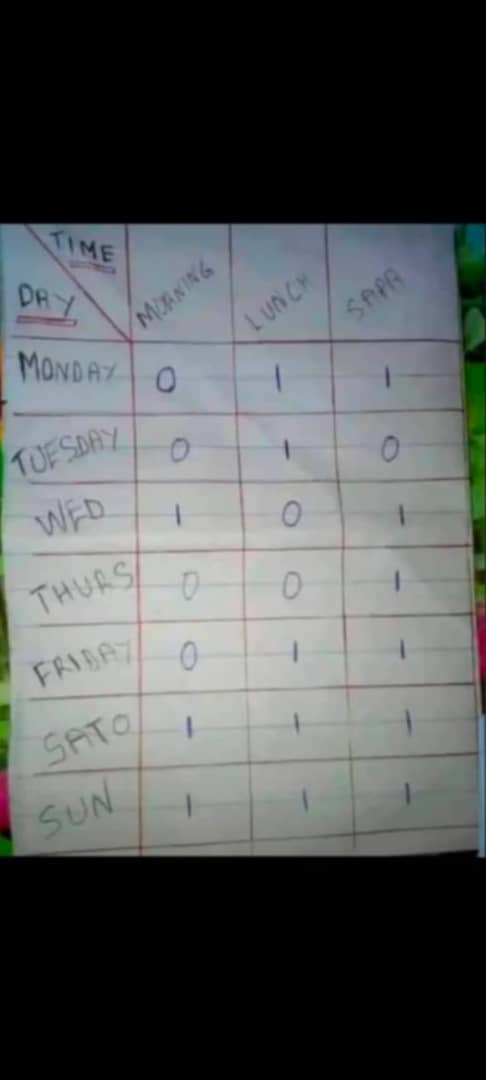 TIME
DAY MORNING LUNCH SAPA
MONDAY 0 1 1
TUESDAY 0 1 0
WED 1 0 1
THURS 0 0 1
FRIDAY 0 1 1
SATO 1 1 1
SUN 1 1 1